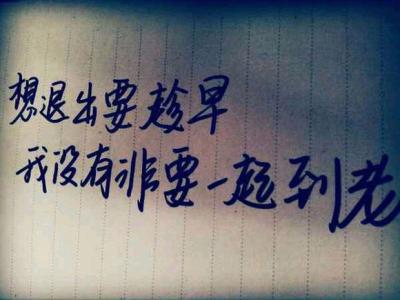 想退出要趁早
我没有非要一起到老